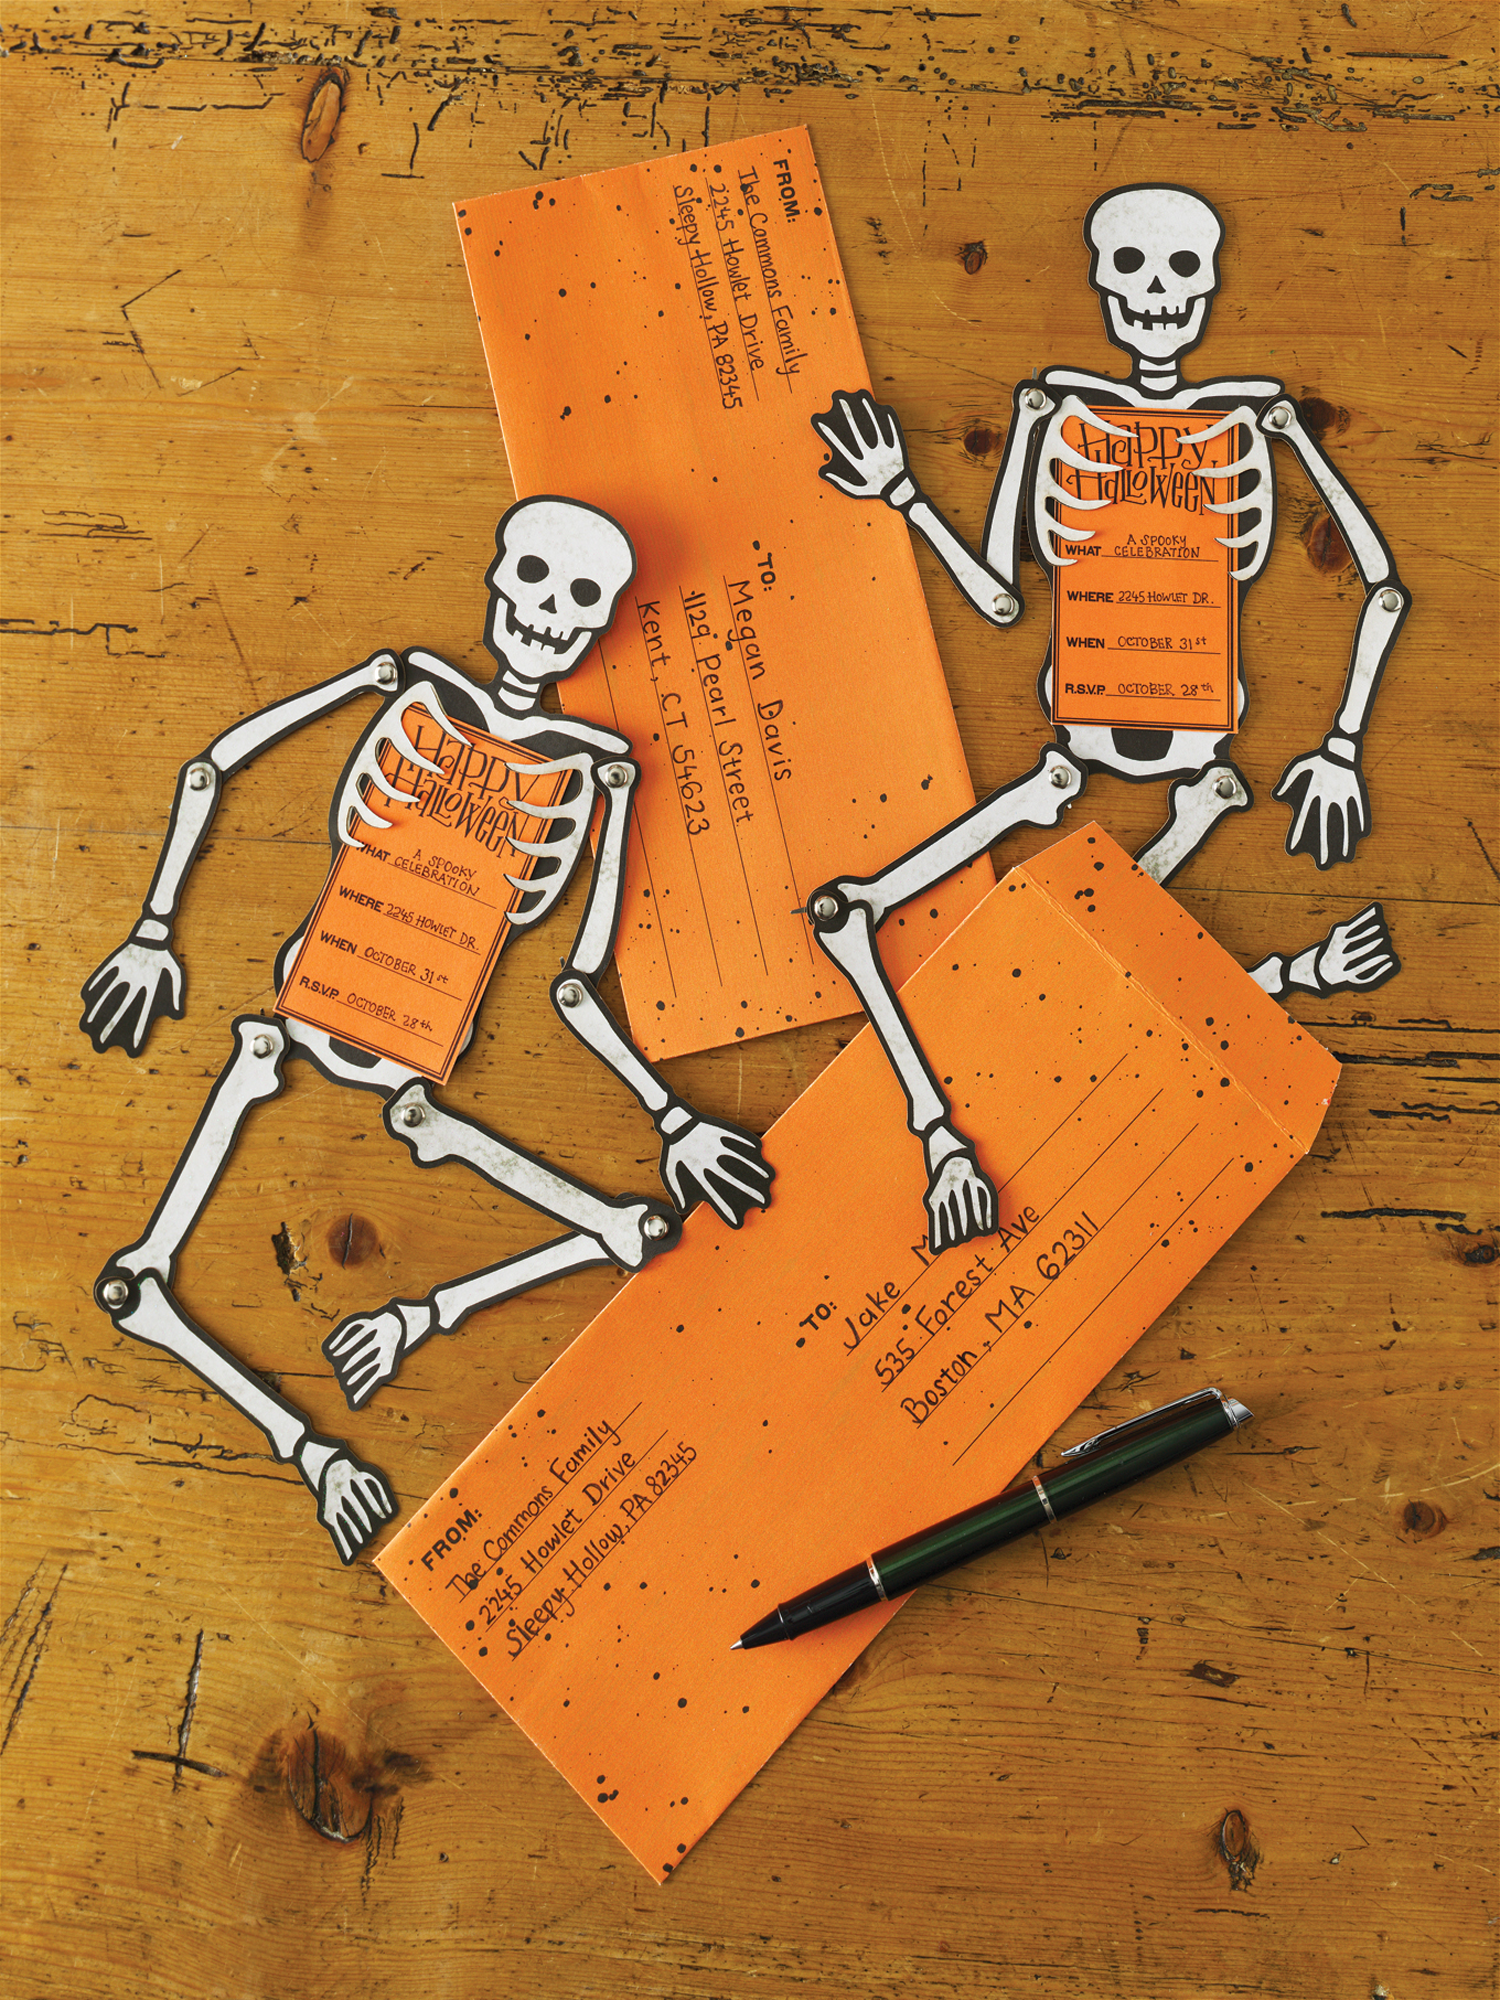 FROM:
The Commons Family
2245 Howlet Drive
Sleepy Hollow, PA 82345
TO:
Megan Davis
1129 Pearl Street
Kent, CT 54623
Happy
Halloween
WHAT A SPOOKY
CELEBRATION
WHERE 2245 HOWLET DR.
WHEN OCTOBER 31st
R.S.V.P. OCTOBER 28th
Happy
Halloween
WHAT A SPOOKY
CELEBRATION
WHERE 2245 HOWLET DR.
WHEN OCTOBER 31st
R.S.V.P. OCTOBER 28th
TO:
Jake
535 Forest Ave
Boston, MA 62311
FROM:
The Commons Family
2245 Howlet Drive
Sleepy Hollow, PA 82345